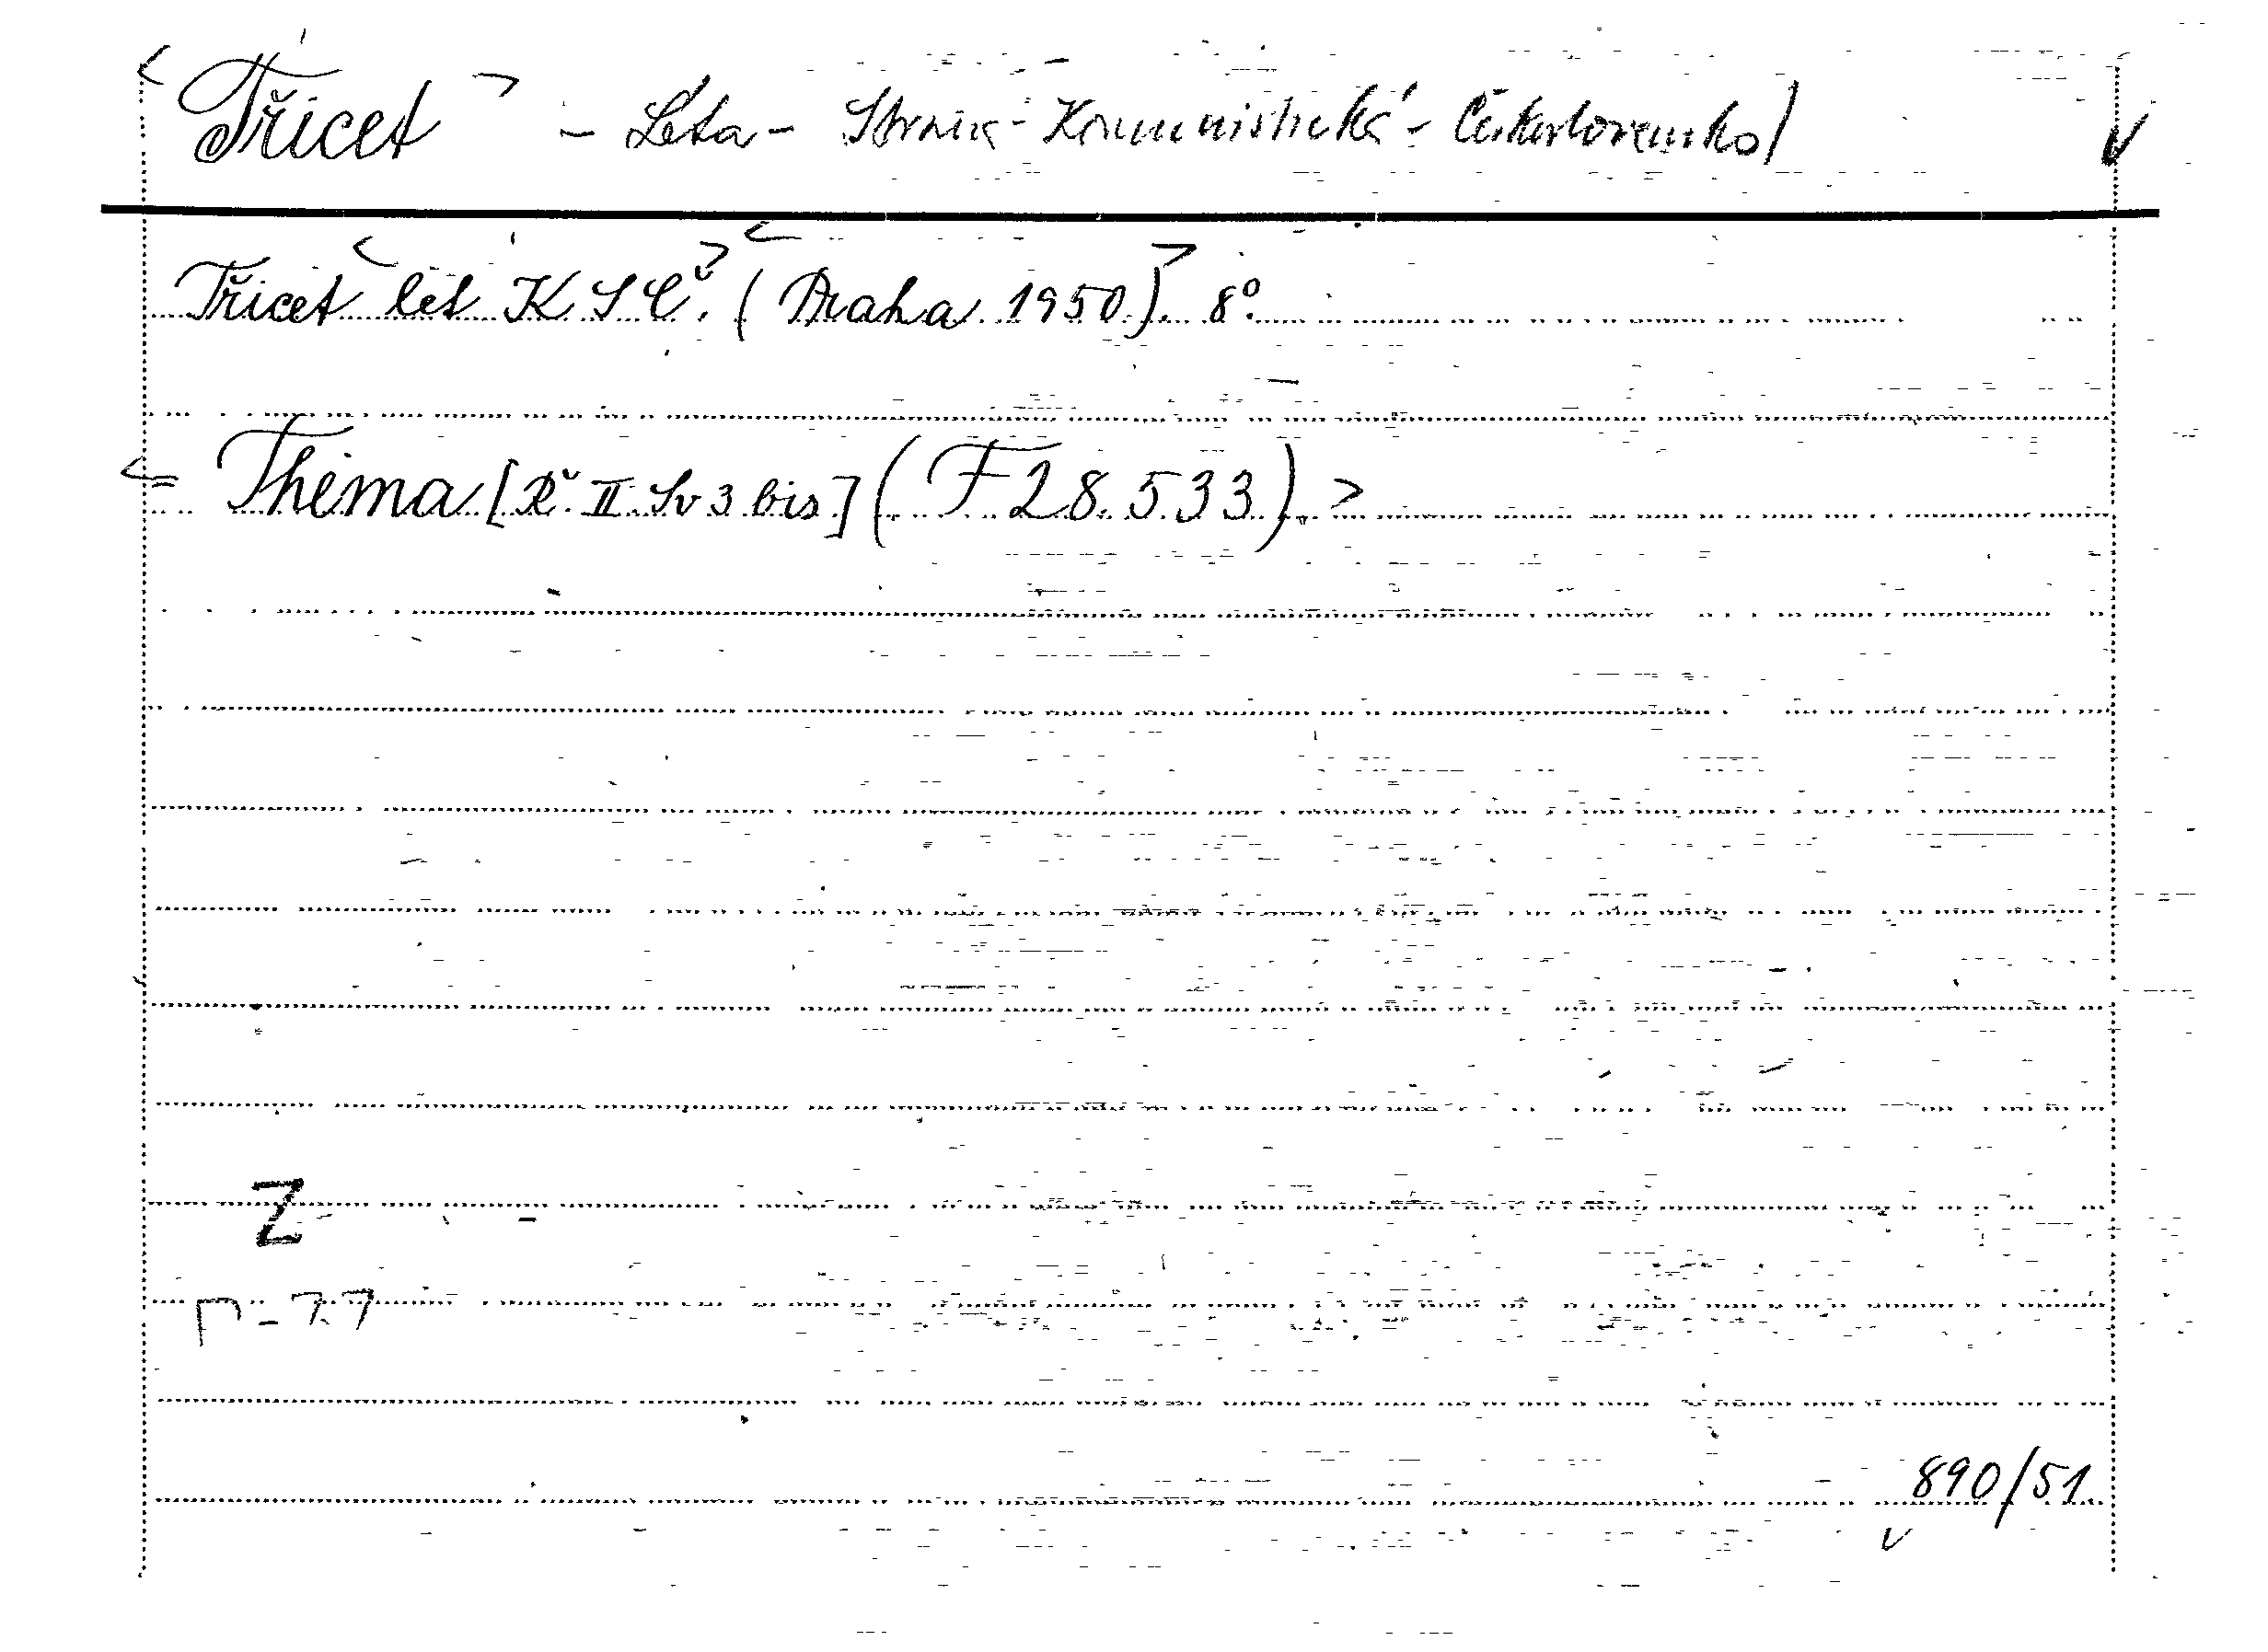 Třicet - Léta - Strana - Komunistická - Československo/
Třicet let KSČ. (Praha 1950). 8°.
Thema [Ř. II. Sv 3 bis] (F 28.533).
Z
n-77
890/51.